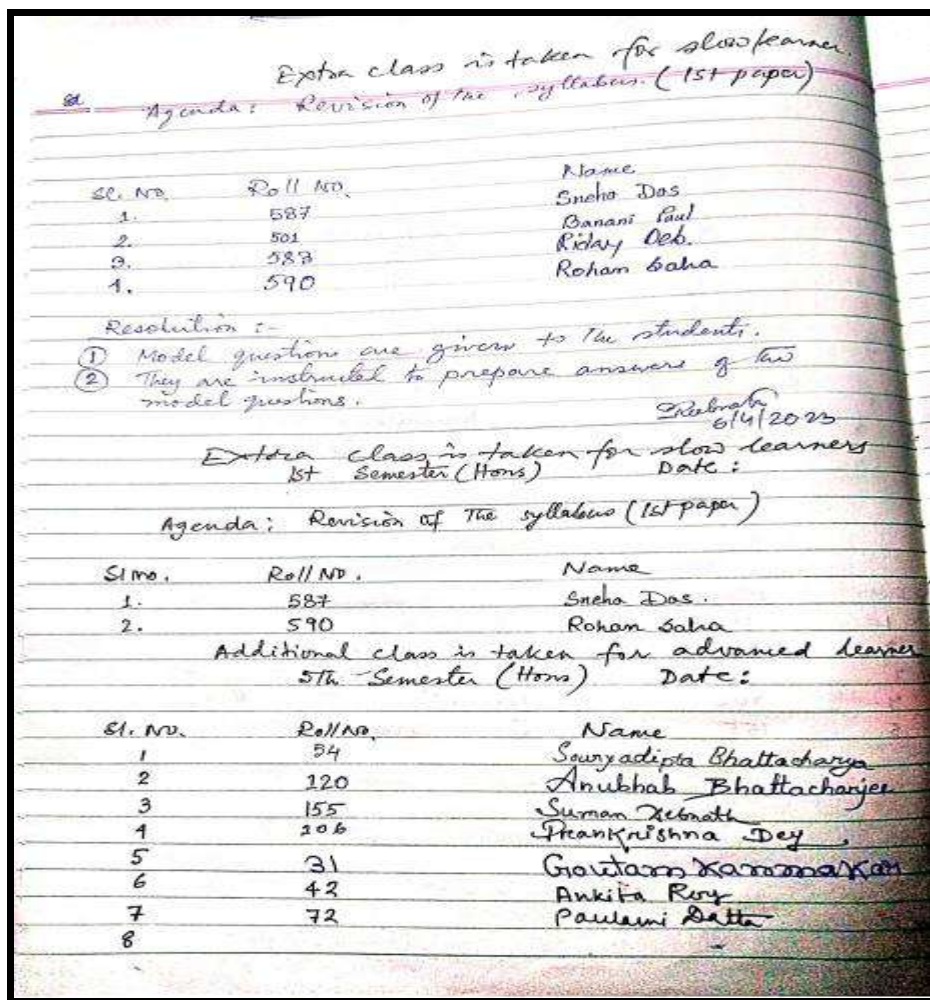 Extra class is taken for slow learner.
Agenda: Revision of the syllabus. (1st paper)
Sl. No. Roll No. Name
1. 587 Sneha Das
2. 501 Banani Paul
3. 583 Riday Deb.
4. 590 Rohan Saha
Resolution :-
① Model questions are given to the students.
② They are instructed to prepare answers of the
model questions.
6/4/2023
Extra class is taken for slow learners
1st Semester (Hons) Date :
Agenda: Revision of The syllabus (1st paper)
Sl no. Roll No. Name
1. 587 Sneha Das.
2. 590 Rohan Saha
Additional class is taken for advanced learner
5Th Semester (Hons) Date :
Sl. No. Roll No. Name
1 54 Souryadipta Bhattacharya
2 120 Anubhab Bhattacharjee
3 155 Suman Debnath
4 206 Prankrishna Dey
5 31 Goutam Karmakar
6 42 Ankita Roy
7 72 Paulami Datta
8